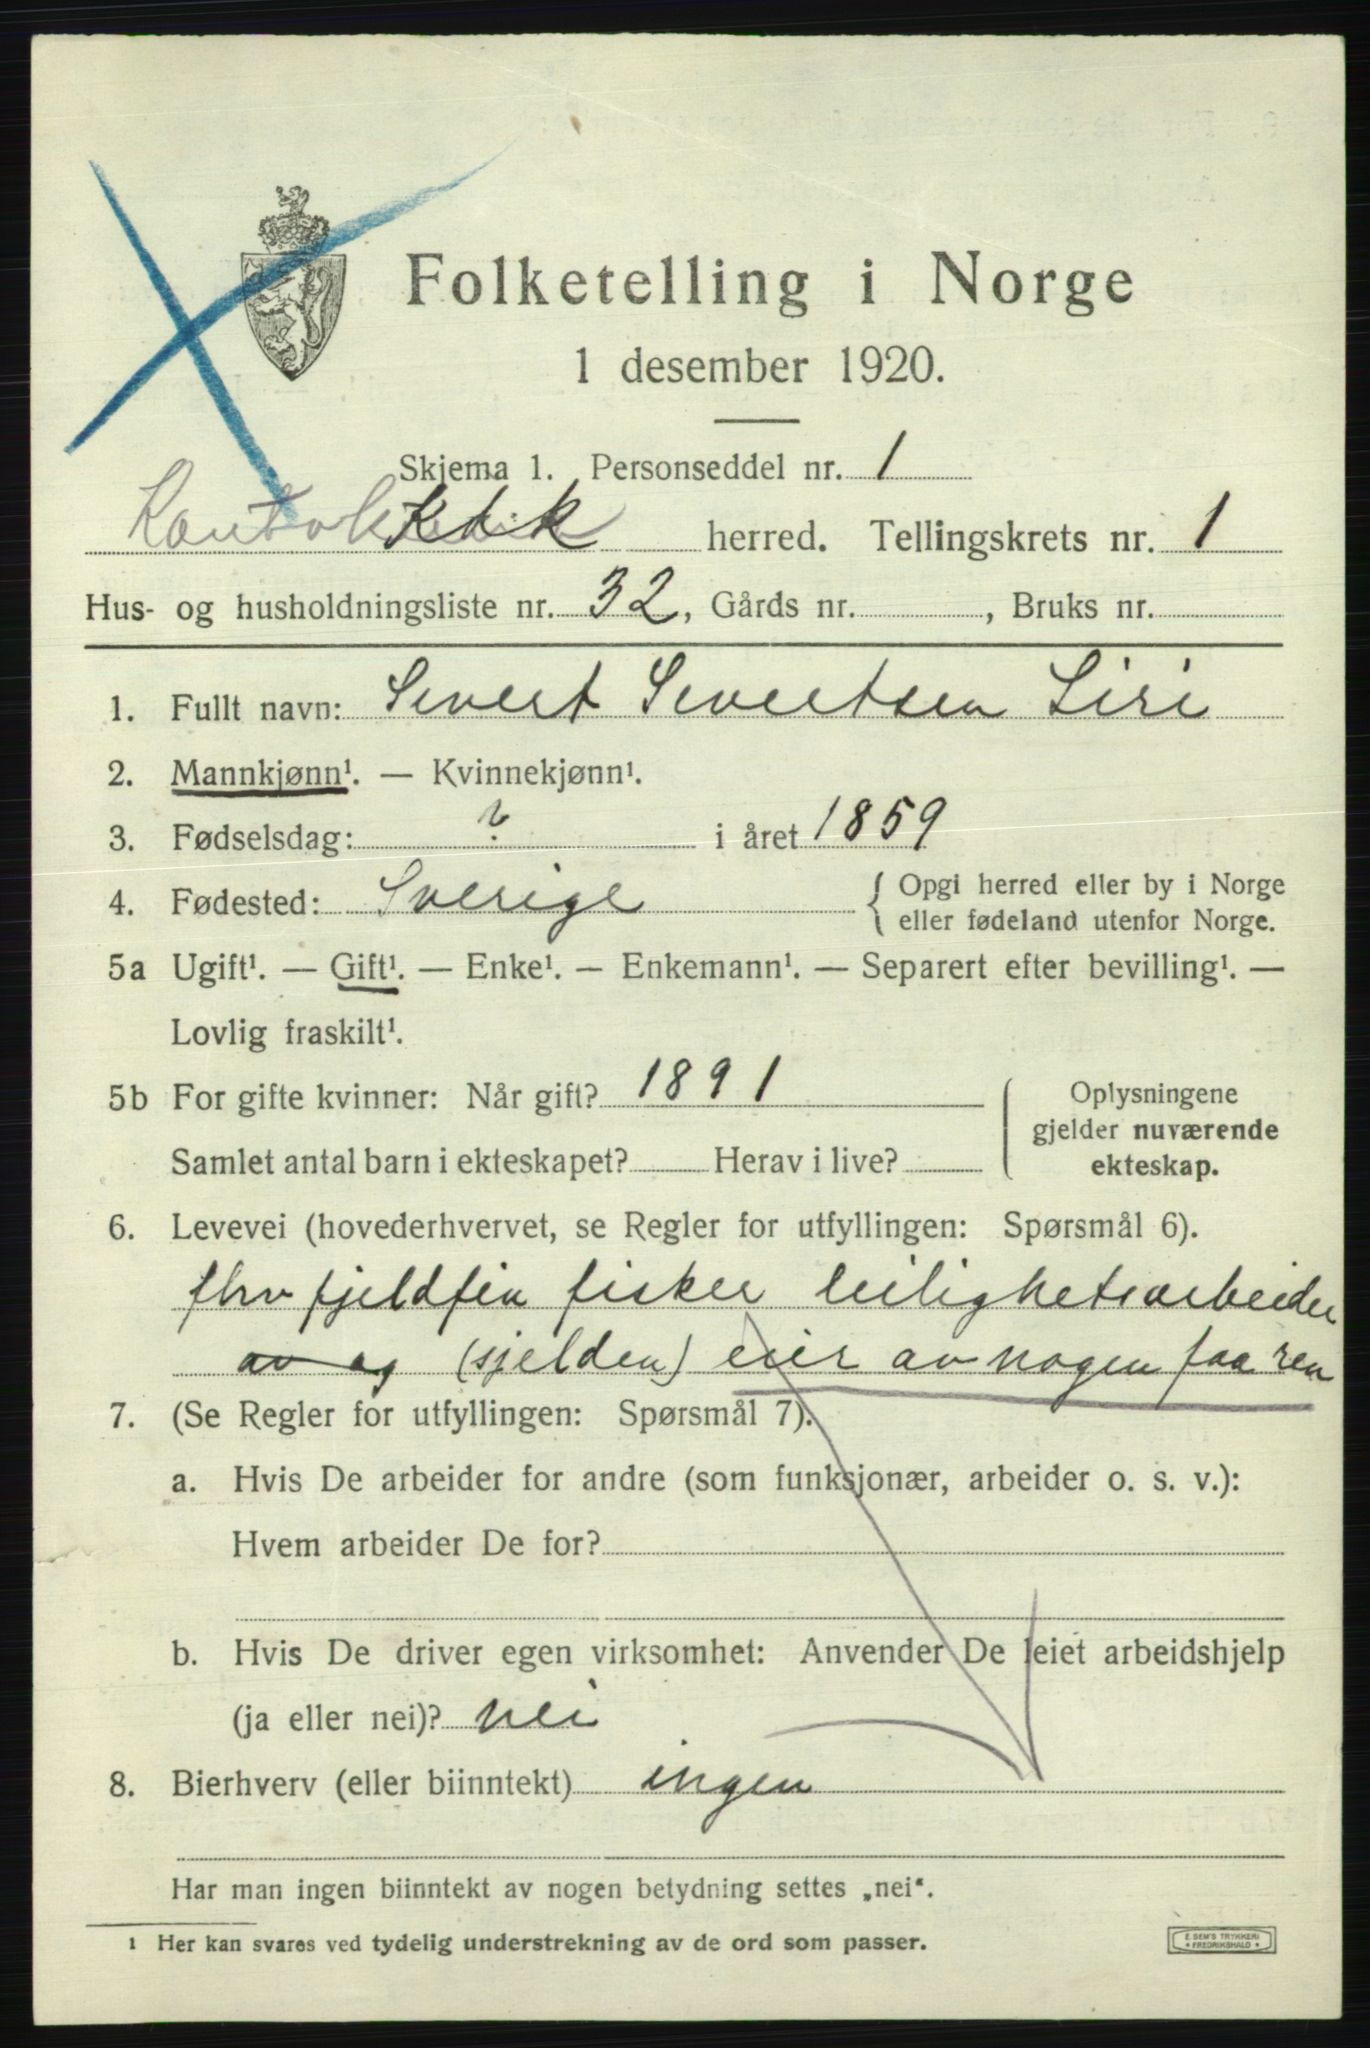 Folketelling i Norge
1 desember 1920.
Skjema 1. Personseddel nr. 1
Kdk herred. Tellingskrets nr. 1
Hus- og husholdningsliste nr. 32, Gårds nr. , Bruks nr.
1. Fullt navn: Sivert Sivertsen Siri
2. Mannkjønn¹. — Kvinnekjønn¹.
3. Fødselsdag: ? i året 1859
4. Fødested: Sverige { Opgi herred eller by i Norge
eller fødeland utenfor Norge.
5a Ugift¹. — Gift¹. — Enke¹. — Enkemann¹. — Separert efter bevilling¹. —
Lovlig fraskilt¹.
5b For gifte kvinner: Når gift? 1891
Samlet antal barn i ekteskapet? Herav i live?
Oplysningene
gjelder nuværende
ekteskap.
6. Levevei (hovederhvervet, se Regler for utfyllingen: Spørsmål 6).
fhv fjeldfin fisker leilighetsarbeider
av og (sjelden) eier av nogen faa ren
7. (Se Regler for utfyllingen: Spørsmål 7).
a. Hvis De arbeider for andre (som funksjonær, arbeider o. s. v.):
Hvem arbeider De for?
b. Hvis De driver egen virksomhet: Anvender De leiet arbeidshjelp
(ja eller nei)? nei
8. Bierhverv (eller biinntekt) ingen
Har man ingen biinntekt av nogen betydning settes „nei“.
¹ Her kan svares ved tydelig understrekning av de ord som passer.
E. SEM'S TRYKKERI
• FREDRIKSHALD •